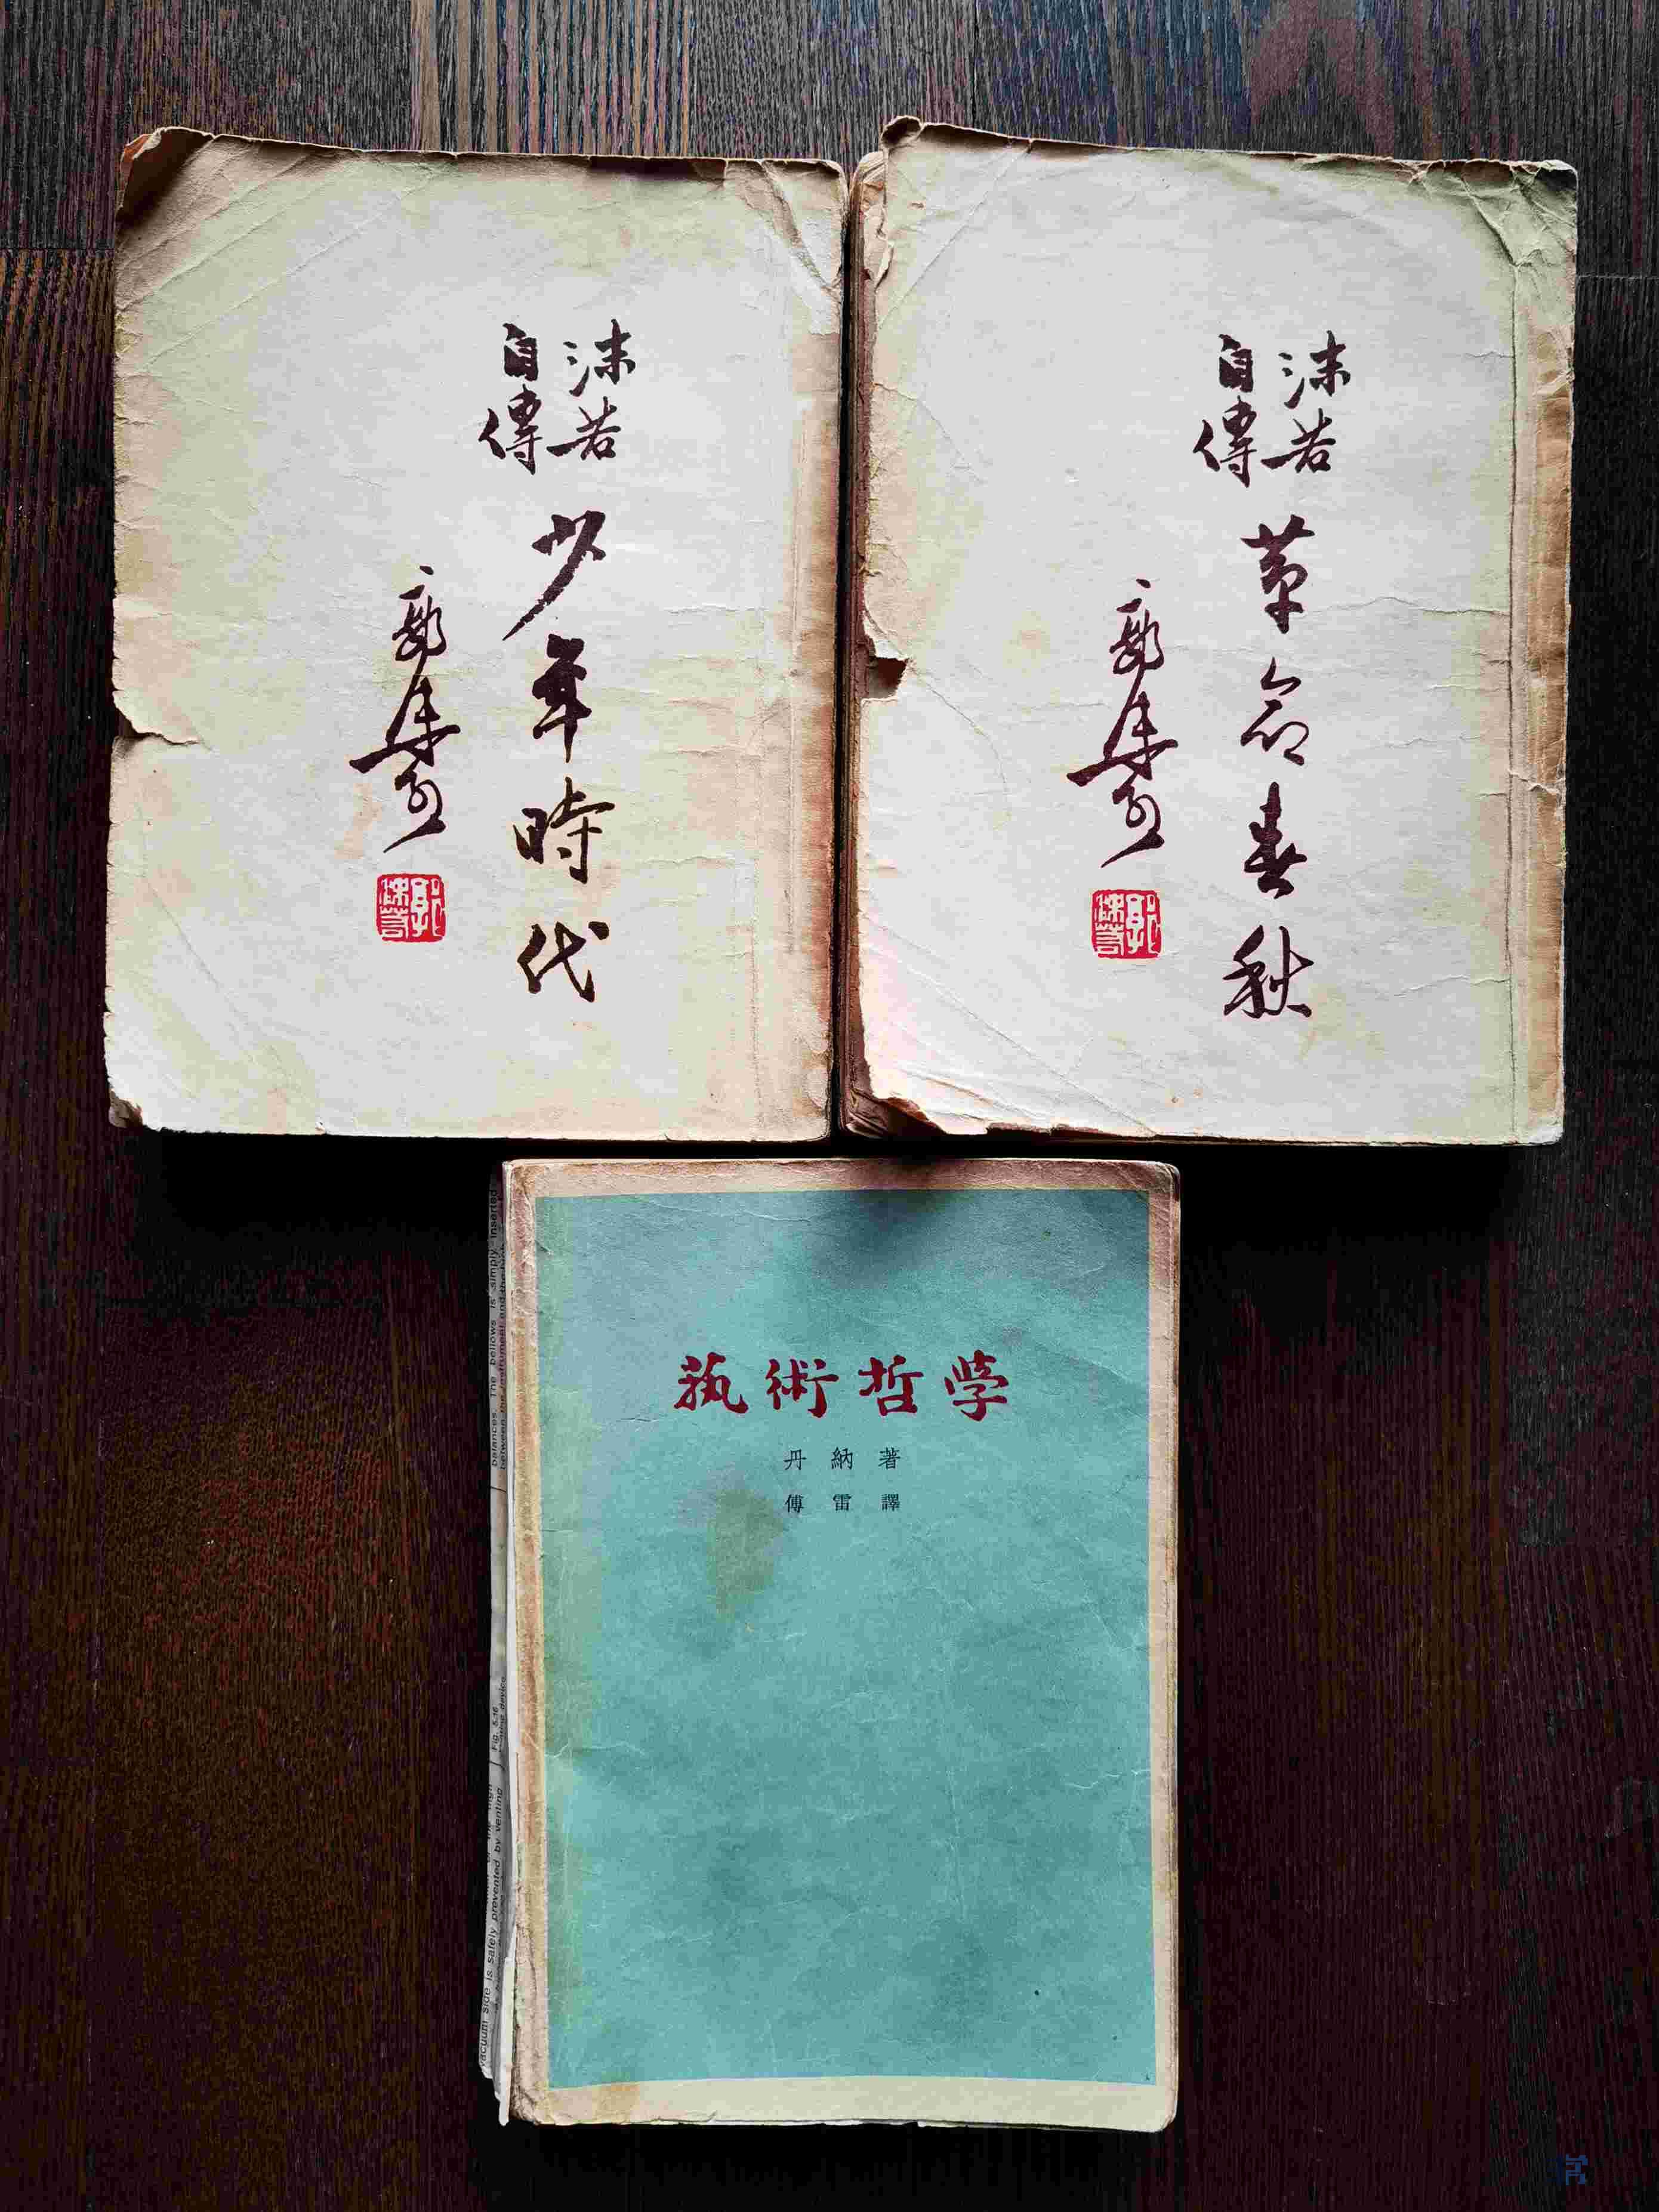 沫若
自傳
少年時代
郭沫若
郭沫若
沫若
自傳
革命春秋
郭沫若
郭沫若
藝術哲學
丹納著
傅雷譯
balances. The bellows is simply inserted
between the instrument and the high
Fig. 5.16
vacuum side is safely prevented by venting